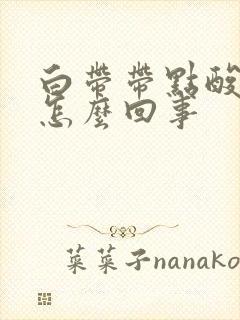 白帶帶點酸
怎麼回事
菜菜子nanako